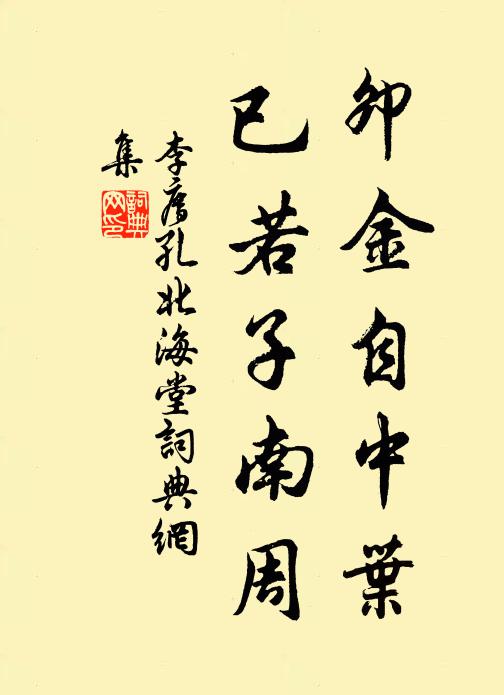 卯金自中葉
已若子南周
李廌孔北海堂詞典網
集
詞典
网印